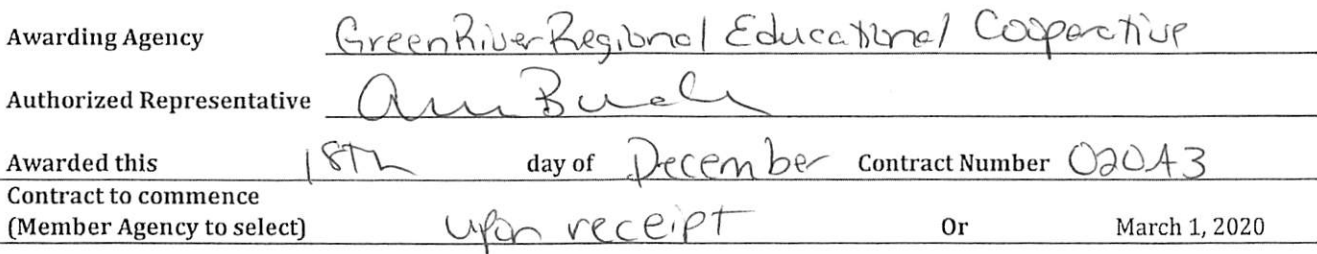 Awarding Agency Green River Regional Educational Cooperative
Authorized Representative Ann Burch
Awarded this 18Th day of December Contract Number 020A3
Contract to commence
(Member Agency to select) upon receipt Or March 1, 2020